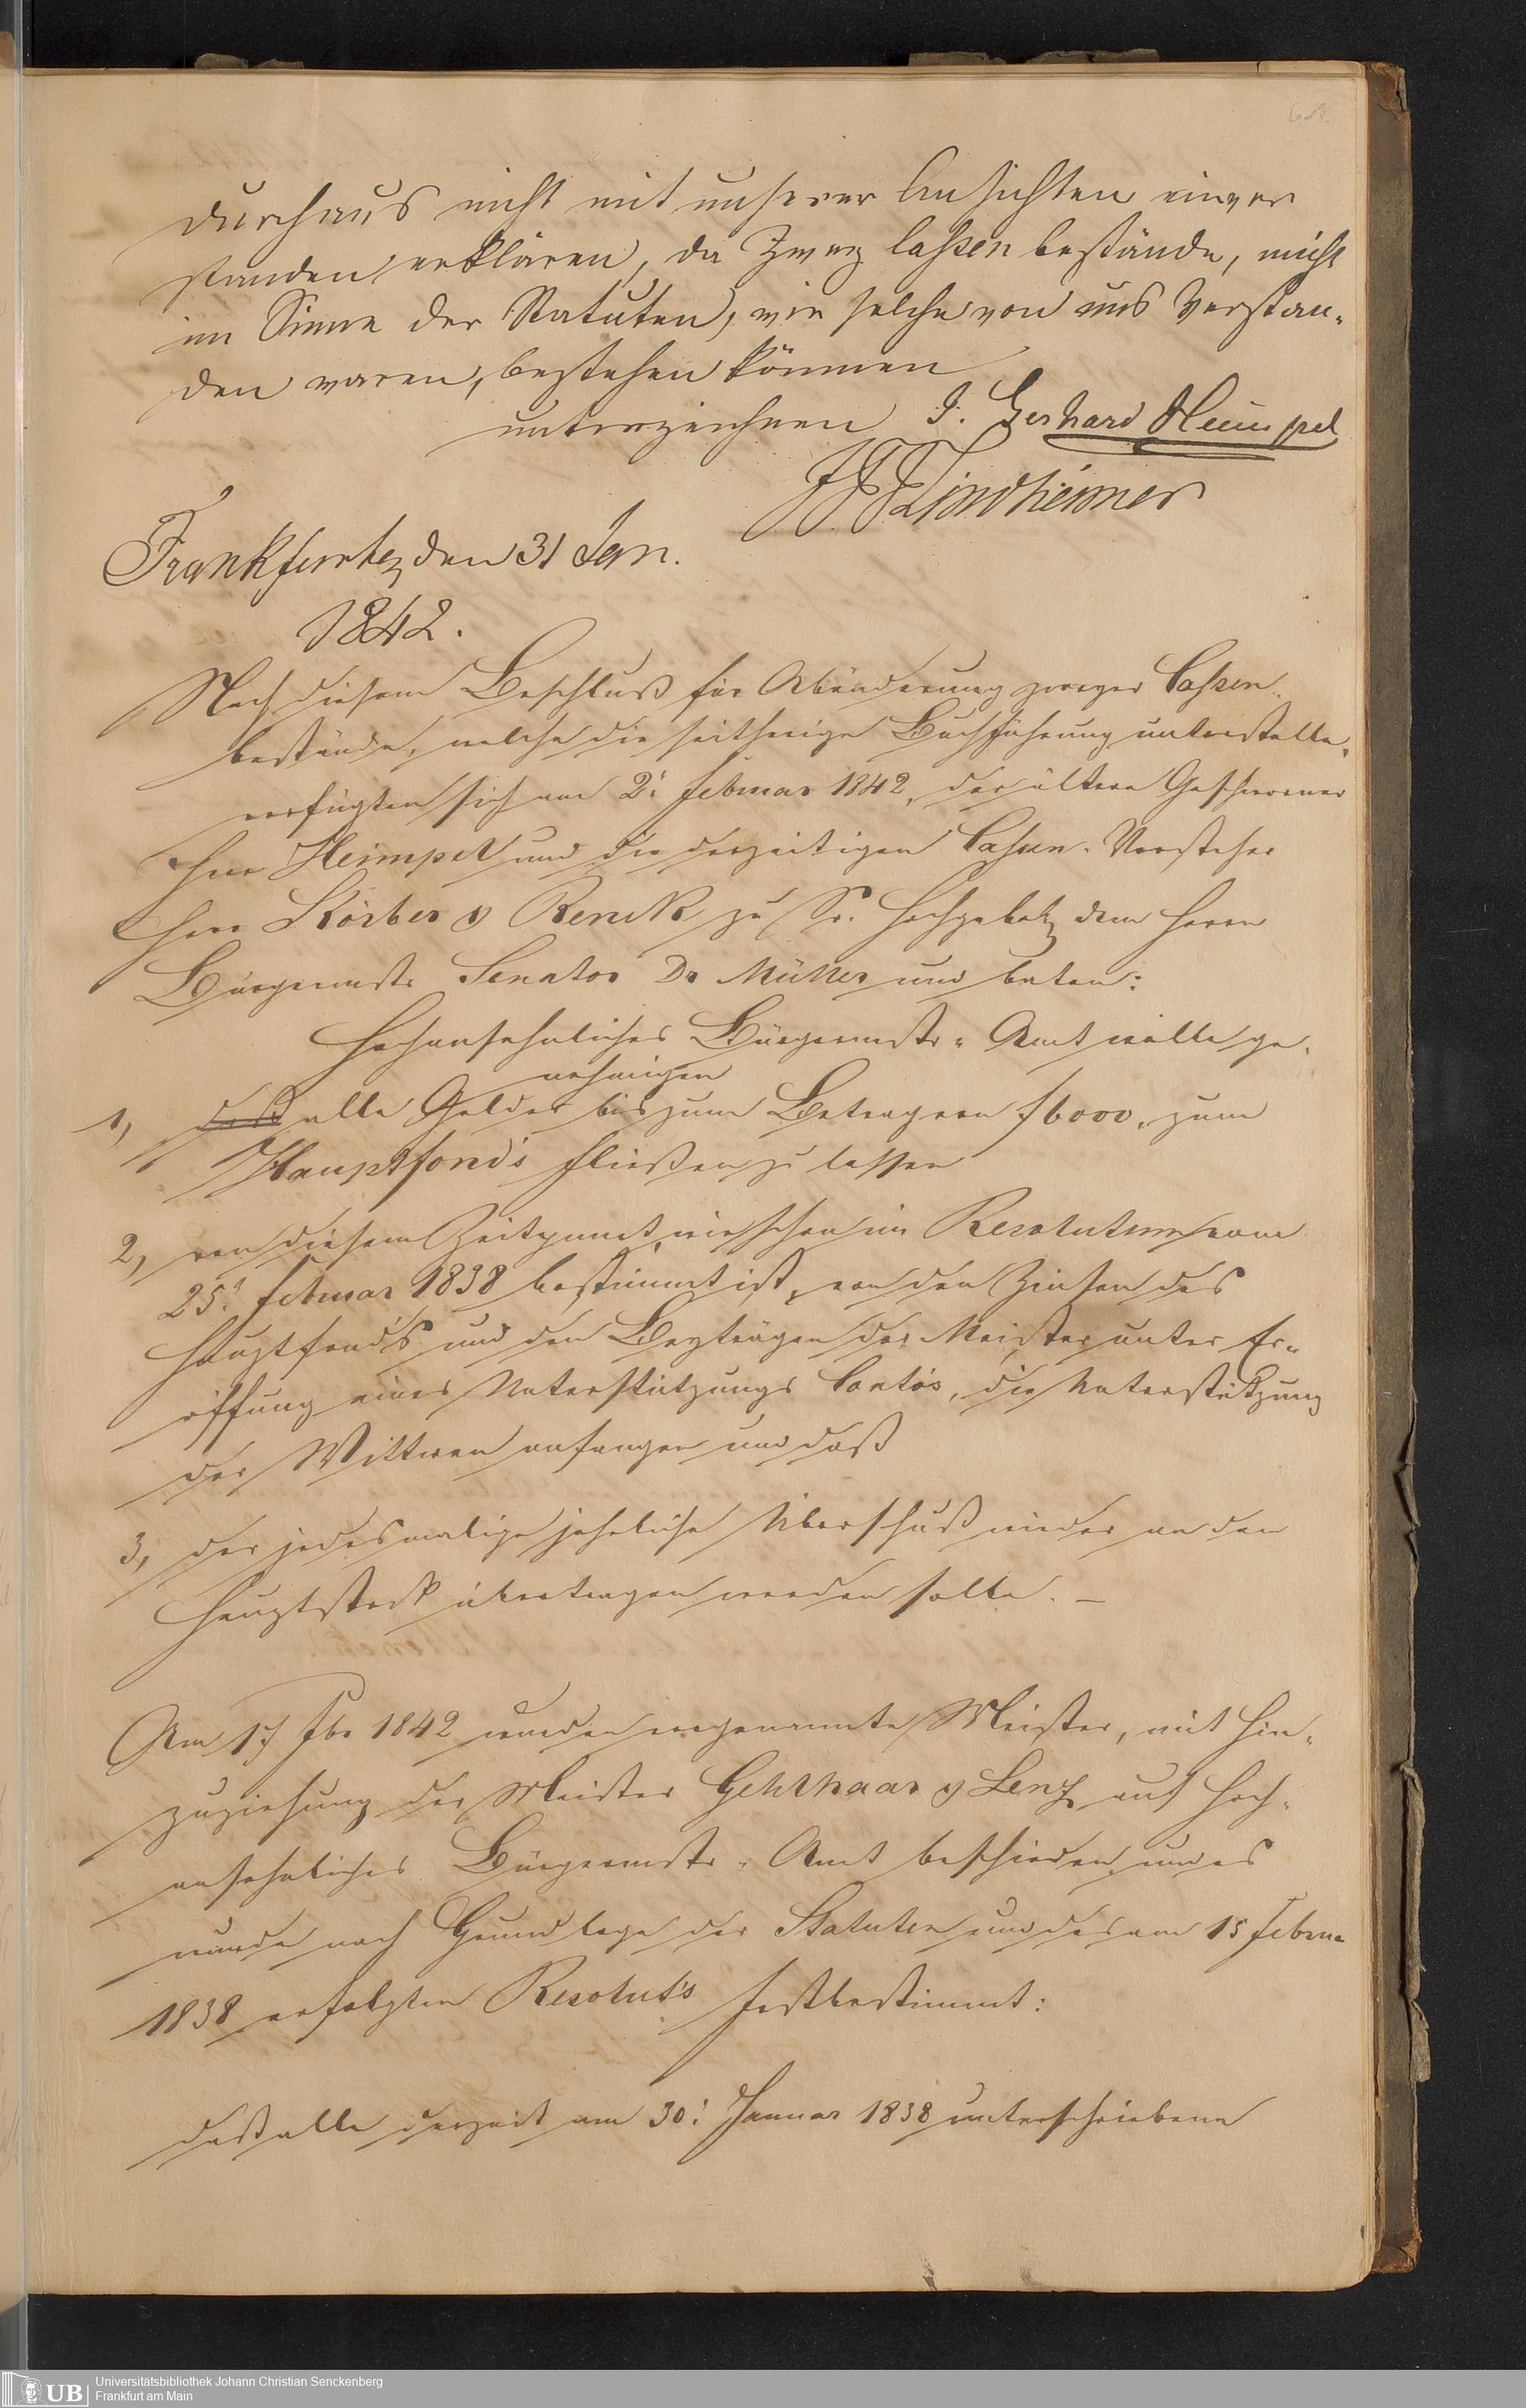 durchaus nicht mit unserer Ansichten einver
standen erklären, da Zwey Cassen bestände, nicht
im Sinne der Statuten, wie solche von uns Verstan-
den waren, bestehen können
unterzeichnen J. Gerhard Heimpel
Lindheimer
Frankfurt den 31 Jan.
1842.
Nach diesem Beschluß für Abänderung zweyer Cassen-
bestände, welche die seitherige Buchführung unterstellte,
verfügten sich am 2: Februar 1842, der ältere Geschworner
Herr Heimpel und die derzeitigen Cassen-Vorsteher
Herr Körber & Renck zu Sr. Hochgeb dem Herrn
Bürgermstr Senator Dr Müller und baten:
Hochansehnliches Bürgermstr-Amt wolle ge-
nehmigen
1, daß alle Gelder bis zum Betrag von f 6000, zum
Hauptfond's fließen zu lassen
2, von diesem Zeitpunct, wie schon im Resolutum vom
25n Februar 1838 bestimmt ist, von den Zinsen des
Hauptfond's und den Beyträgen der Meister unter Er-
öffnung eines Unterstützungs Conto's, die Unterstützung
der Wittwen anfangen und daß
3, der jedesmalige jährliche Überschuß wieder an den
Hauptstock übertragen werden solle. –
Am 17 Fbr 1842 wurden vorgenannte Meister, mit Hin-
zuziehung der Meister Gehrhaar & Lenz auf Hoch-
ansehnliches Bürgermstr-Amt beschieden, und es
wurde nach Grundlage der Statuten und des am 15 Febru
1838 erfolgten Resolut's festbestimmt:
daß alle derzeit am 30: Januar 1838 unterschriebene
Universitätsbibliothek Johann Christian Senckenberg
Frankfurt am Main
UB